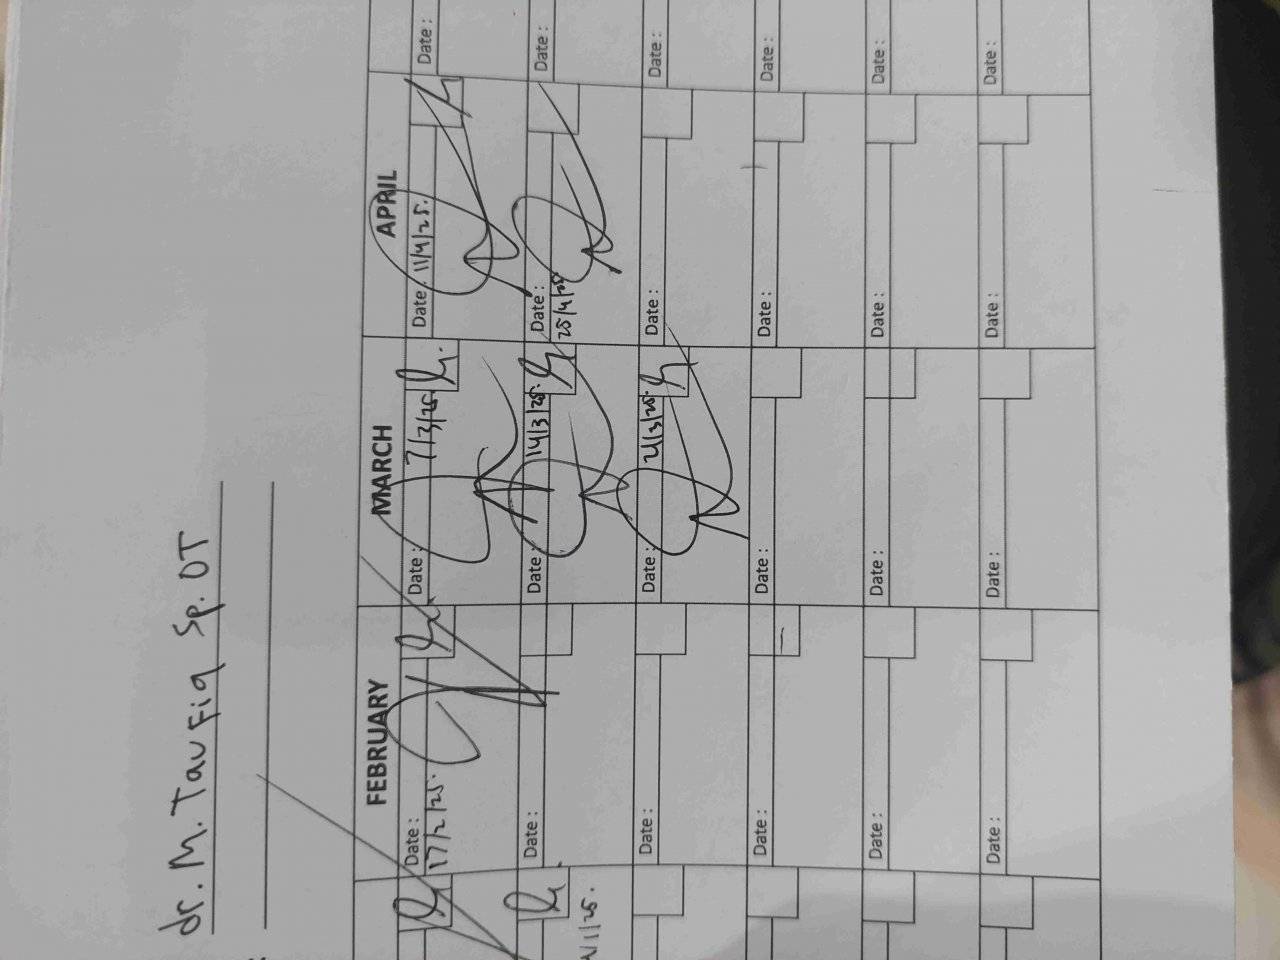 dr. M. Taufiq Sp. OT
FEBRUARY MARCH APRIL
Date : Date : 7/3/25. Date : 11/4/25. Date :
17/2/25.
Date : Date : 14/3/25. Date : Date :
25/4/25
Date : Date : 21/3/25. Date : Date :
Date : Date : Date : Date :
Date : Date : Date : Date :
Date : Date : Date : Date :